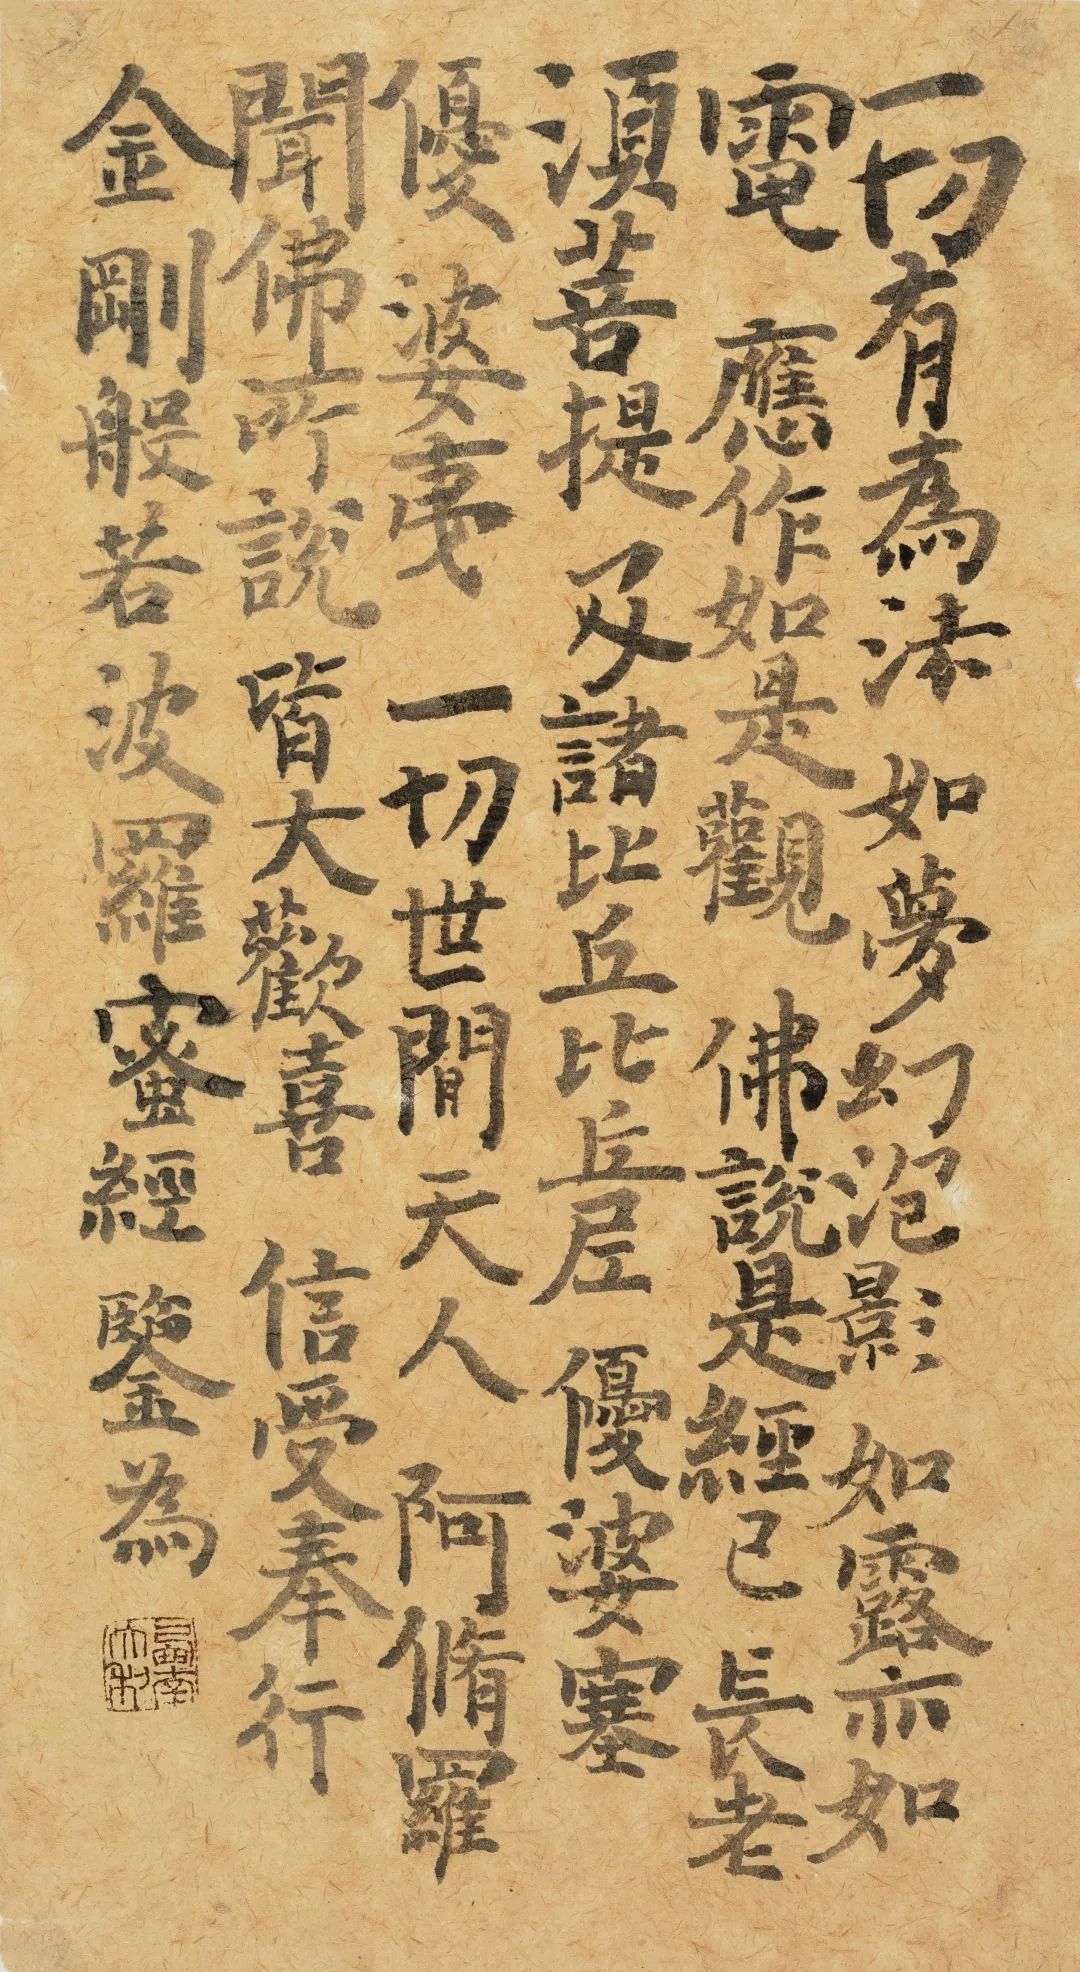 一切有為法 如夢幻泡影 如露亦如
電 應作如是觀 佛說是經已 長老
湏菩提 及諸比丘比丘尼 優婆塞
優婆夷 一切世間天人 阿脩羅
聞佛所說 皆大歡喜 信受奉行
金剛般若波羅蜜經 鑒為